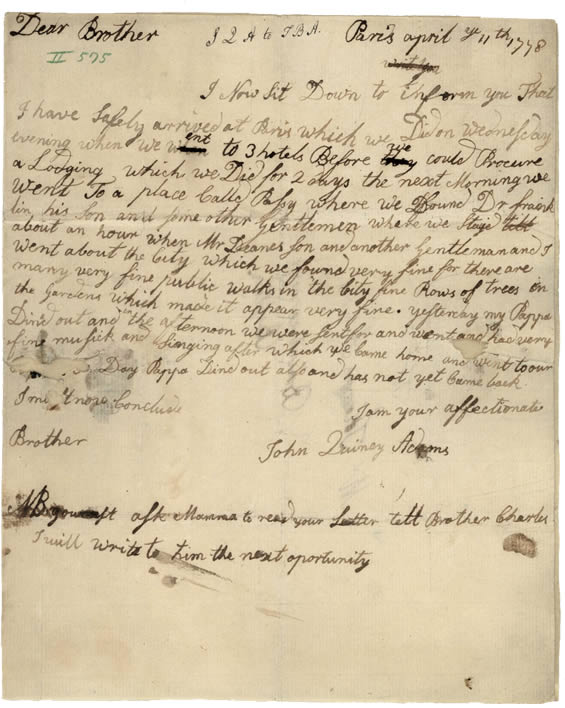 Dear Brother J Q A to T B A. Paris april ye 11th 1778
II 575
I Now Sit Down to inform you That
I have Safely arrived at Paris which we Did on Wednesday
evening when we went to 3 hotels Before we could Procure
a Lodging which we Did for 2 days the next Morning we
went To a place Calld Passy where we found Dr frank
lin his Son and some other Gentlemen where we Staid
about an hour when Mr Deanes son and another Gentleman and I
went about the City which we found very fine for there are
many very fine public walks in the City fine Rows of trees in
the Gardens which make it appear very fine. yesterday my Pappa
Dind out and in the afternoon we were sent for and went and had very
fine musick and Singing after which we Came home and went to our
Day Pappa Dind out also and has not yet Came back
I must now Conclude
I am your affectionate
Brother
John Quincy Adams
NB you must ask Mamma to read your Letter tell Brother Charles
I will write to him the next oportunity